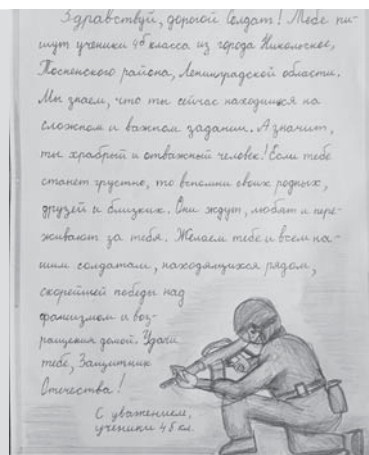 Здравствуй, дорогой Солдат! Тебе пи-
шут ученики 4б класса из города Никольское,
Тосненского района, Ленинградской области.
Мы знаем, что ты сейчас находишься на
сложном и важном задании. А значит,
ты храбрый и отважный человек! Если тебе
станет грустно, то вспомни своих родных,
друзей и близких. Они ждут, любят и пере-
живают за тебя. Желаем тебе и всем на-
шим солдатам, находящихся рядом,
скорейшей победы над
фашизмом и воз-
ращения домой. Удачи
тебе, Защитник
Отечества!
С уважением,
ученики 4б кл.